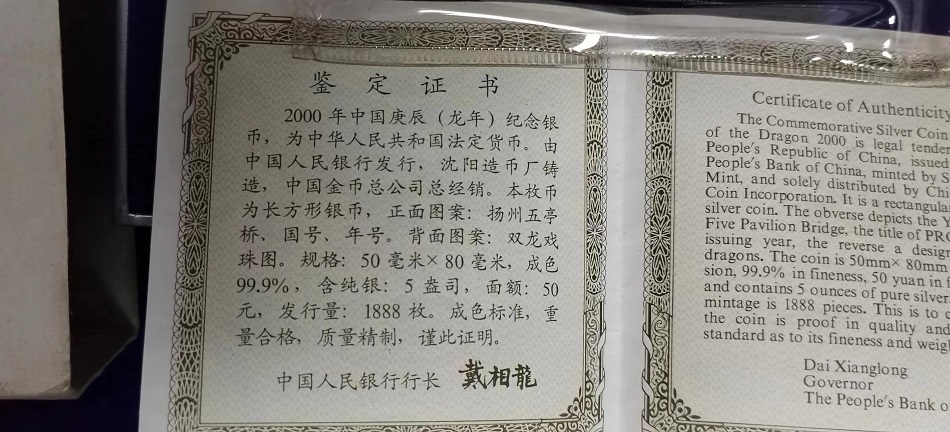 鉴定证书
2000年中国庚辰（龙年）纪念银
币，为中华人民共和国法定货币。由
中国人民银行发行，沈阳造币厂铸
造，中国金币总公司总经销。本枚币
为长方形银币，正面图案：扬州五亭
桥、国号、年号。背面图案：双龙戏
珠图。规格：50毫米×80毫米，成色
99.9%，含纯银：5盎司，面额：50
元，发行量：1888枚。成色标准，重
量合格，质量精制，谨此证明。
中国人民银行行长 戴相龍
Certificate of Authenticity
The Commemorative Silver Coin
of the Dragon 2000 is legal tender
People's Republic of China, issued
People's Bank of China, minted by S
Mint, and solely distributed by Chi
Coin Incorporation. It is a rectangula
silver coin. The obverse depicts the Y
Five Pavilion Bridge, the title of PRC
issuing year, the reverse a design
dragons. The coin is 50mm× 80mm
sion, 99.9% in fineness, 50 yuan in f
and contains 5 ounces of pure silver
mintage is 1888 pieces. This is to c
the coin is proof in quality and
standard as to its fineness and weigh
Dai Xianglong
Governor
The People's Bank o